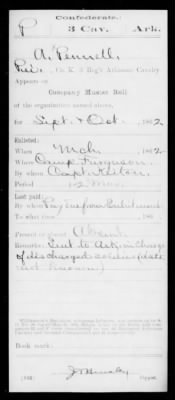 Confederate.
P 3 Cav. Ark.
A. Pennell
Pvt., Co. K, 3 Reg't Arkansas Cavalry.
Appears on
Company Muster Roll
of the organization named above,
for Sept. & Oct., 1862
Enlisted:
When Mch, 1862
Where Camp Ferguson.
By whom Capt.
Period 12 Mos.
Last paid:
By whom
To what time , 186 .
Present or absent Absent
Remarks: Sent to Ark. in Charge
of discharged soldiers (date
not known)
Book mark:
(642) Copyist.